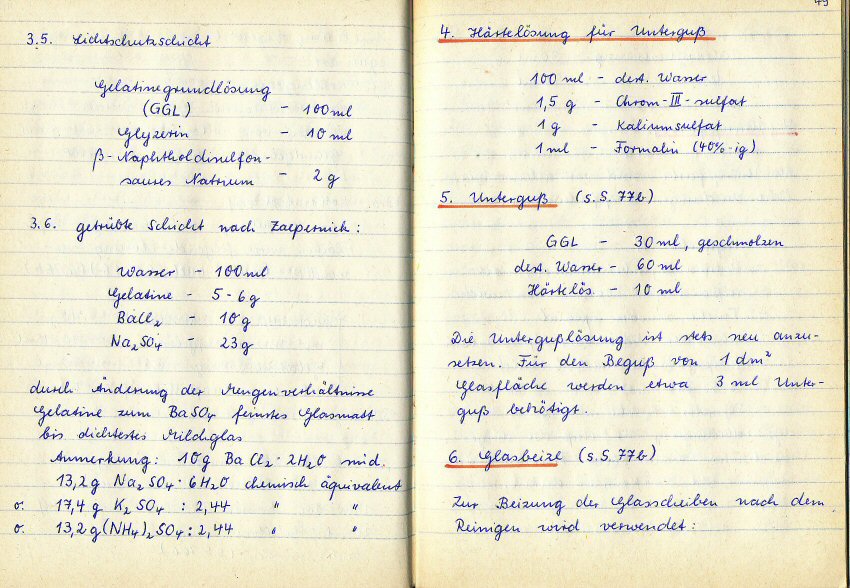 3.5. Lichtschutzschicht
Gelatinegrundlösung
(GGL) - 100 ml
Glyzerin - 10 ml
β-Naphtholdisulfon-
saures Natrium - 2 g
3.6. getrübte Schicht nach Zaepernick:
Wasser - 100 ml
Gelatine - 5-6 g
BaCl₂ - 10 g
Na₂SO₄ - 23 g
durch Änderung der Mengenverhältnisse
Gelatine zum BaSO₄ feinstes Glasmatt
bis dichtestes Milchglas
Anmerkung: 10 g BaCl₂ · 2H₂O sind
13,2 g Na₂SO₄ · 6H₂O chemisch äquivalent
o. 17,4 g K₂SO₄ : 2,44 " "
o. 13,2 g (NH₄)₂SO₄ : 2,44 " "
49
4. Härtelösung für Unterguß
100 ml - dest. Wasser
1,5 g - Chrom-III-sulfat
1 g - Kaliumsulfat
1 ml - Formalin (40%-ig)
5. Unterguß (s. S. 77b)
GGL - 30 ml, geschmolzen
dest. Wasser - 60 ml
Härtelös. - 10 ml
Die Untergußlösung ist stets neu anzu-
setzen. Für den Beguß von 1 dm²
Glasfläche werden etwa 3 ml Unter-
guß benötigt.
6. Glasbeize (s. S. 77b)
Zur Beizung der Glasscheiben nach dem
Reinigen wird verwendet: